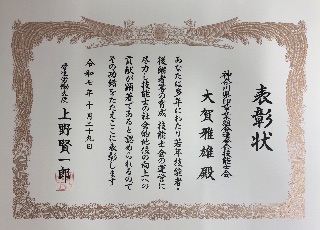 表彰状
大賀雅雄殿
あなたは多年にわたり若年技能者・
後継者等の育成、技能士会の運営に
尽力し技能士の社会的地位の向上への
貢献が顕著であると認められるので
その功績をたたえここに表彰します
令和七年十月二十九日
厚生労働大臣
上野賢一郎